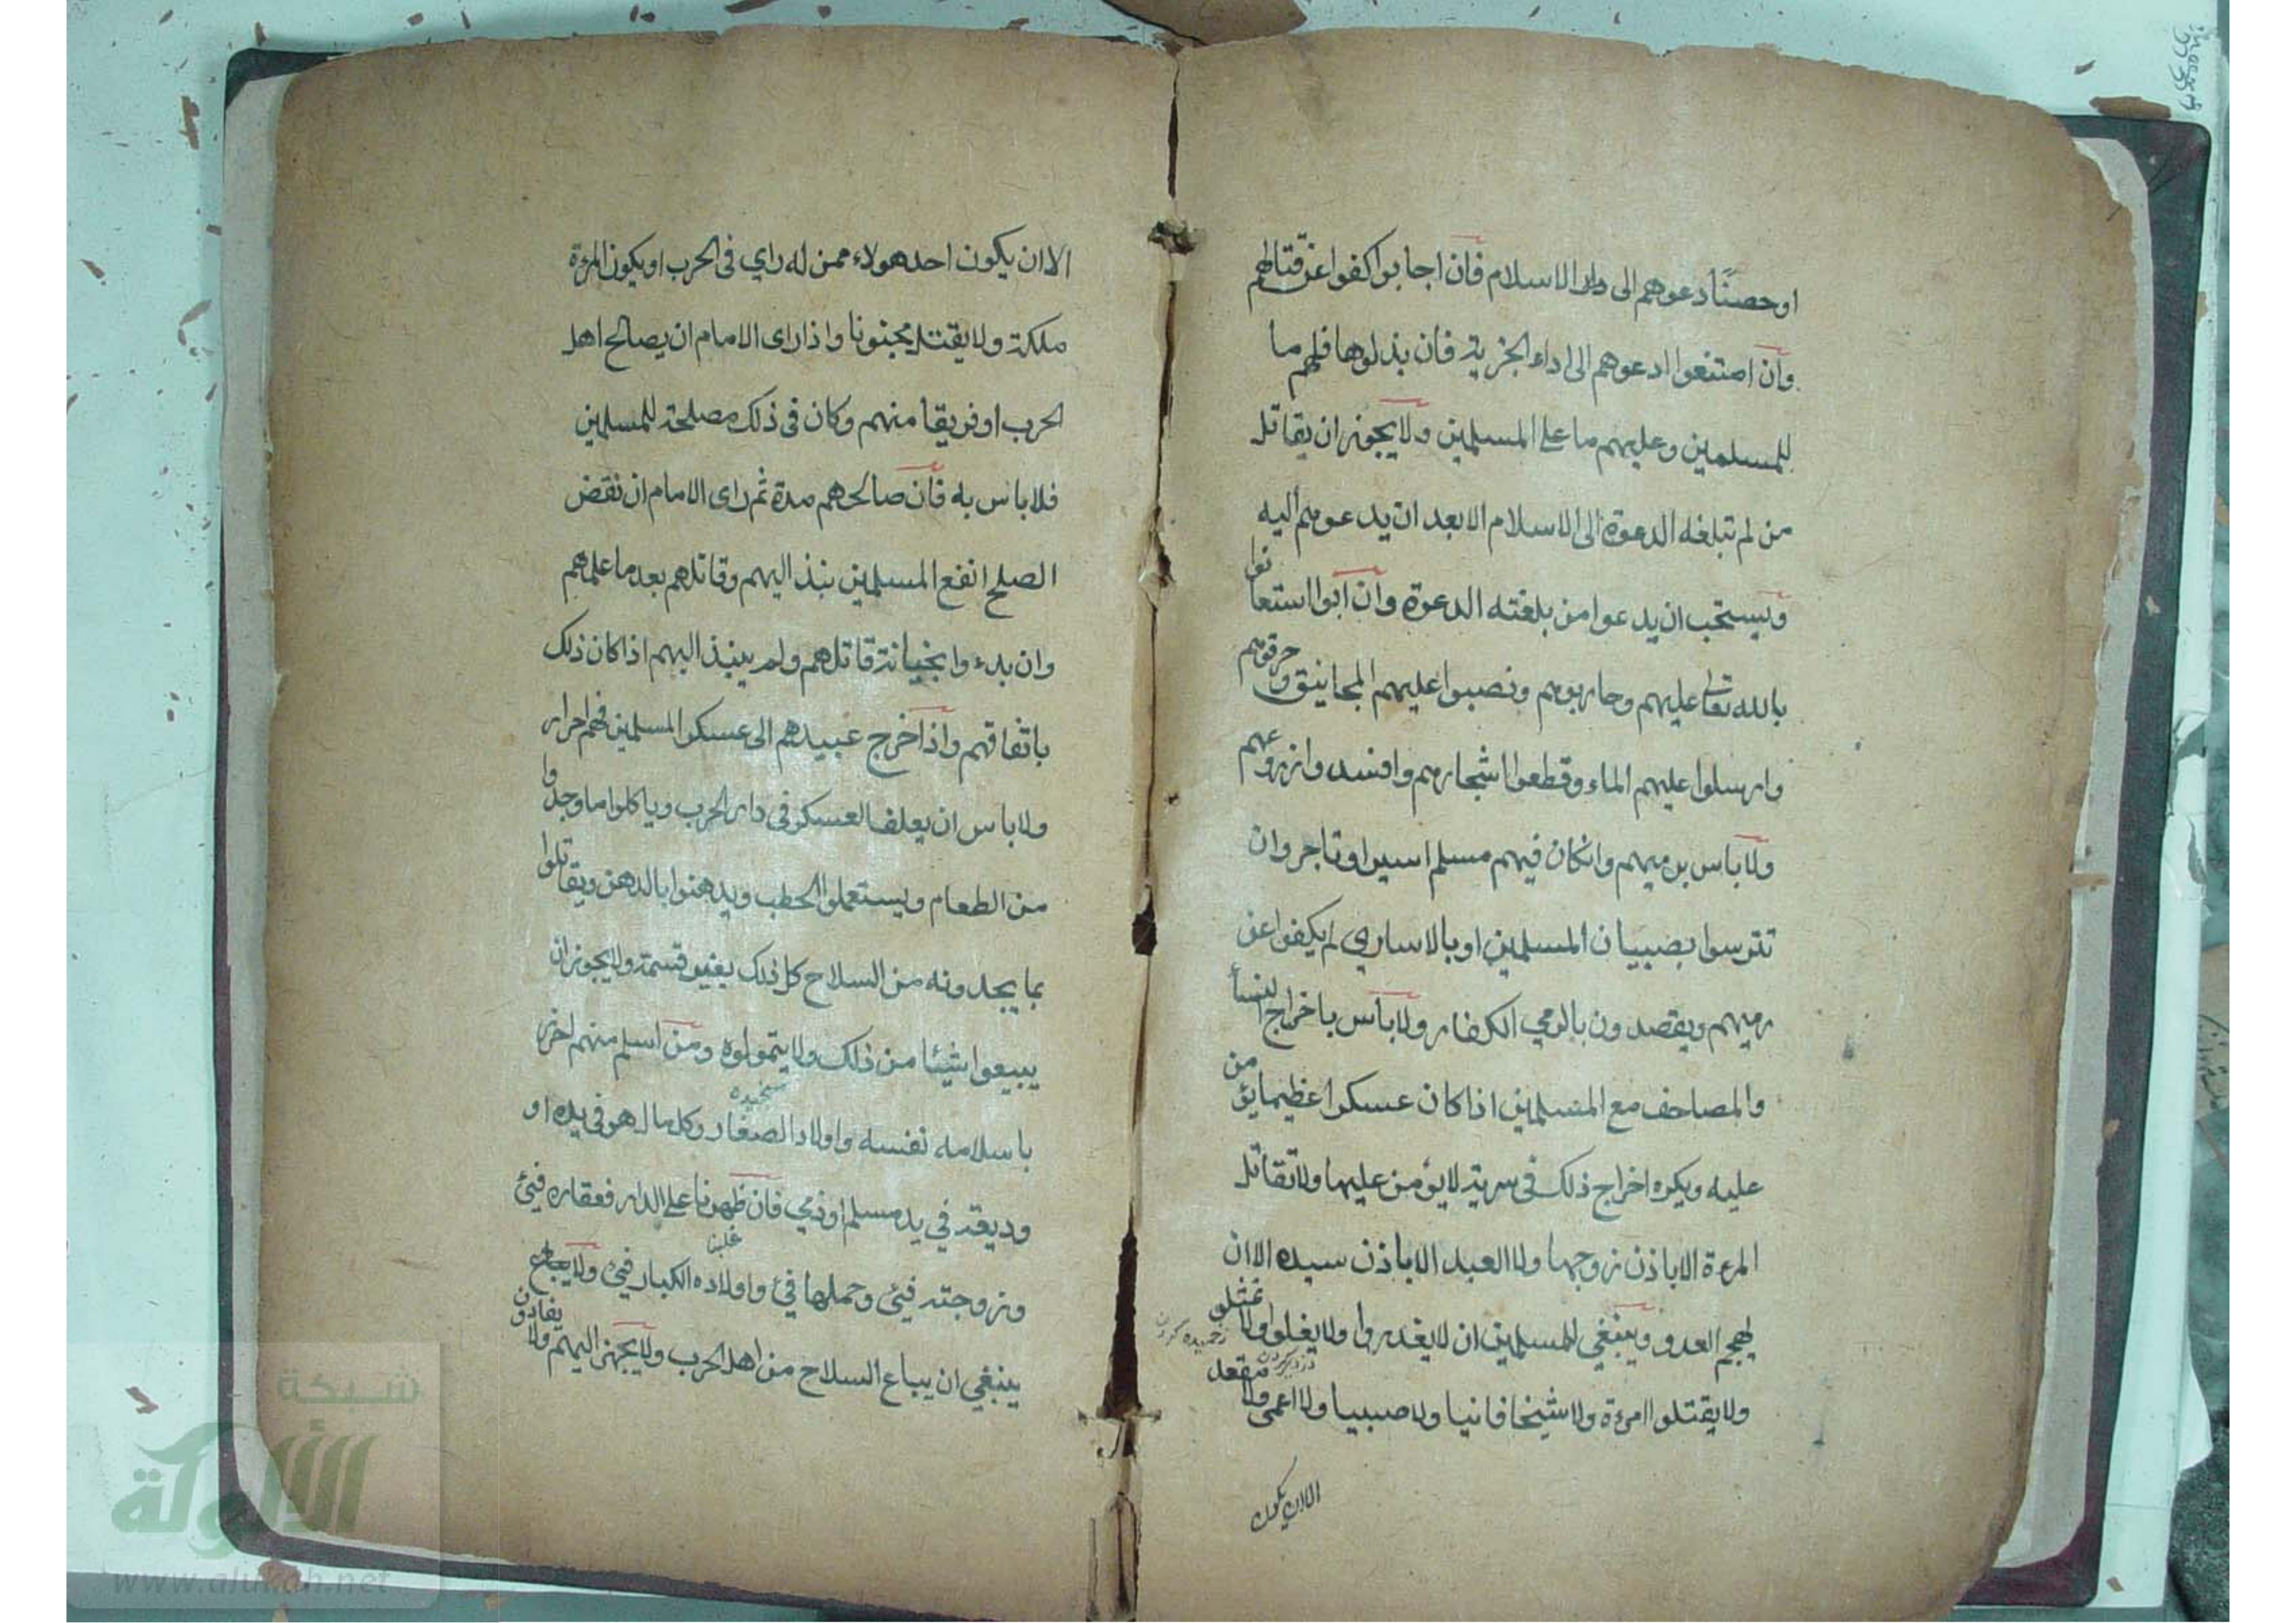 او حصنًا دعوهم الى دار الاسلام فان اجابوا كفوا عن قتالهم
وان امتنعوا ادعوهم الى اداء الجزية فان بذلوها فلهم ما
للمسلمين وعليهم ما على المسلمين ولا يجوز ان يقاتل
من لم تبلغه الدعوة الى الاسلام الا بعد ان يدعوهم اليه
ويستحب ان يدعوا من بلغته الدعوة وان ابوا استعانوا
بالله تعالى عليهم وحاربوهم ونصبوا عليهم المجانيق وحرقوهم
وارسلوا عليهم الماء وقطعوا اشجارهم وافسدوا زروعهم
ولا باس برميهم وانكان فيهم مسلم اسيرا وتاجر وان
تترسوا بصبيان المسلمين او بالاسارى لم يكفوا عن
رميهم ويقصدون بالرمي الكفار ولا بأس باخراج النسأ
والمصاحف مع المسلمين اذا كان عسكرا عظيما يؤمن
عليه ويكره اخراج ذلك في سرية لا يؤمن عليها ولا تقاتل
المرءة الا باذن زوجها ولا العبد الا باذن سيده الا ان
يهجم العدو وينبغي للمسلمين ان لا يغدروا ولا يغلوا ولا تمثلو
ولا يقتلوا امرءة ولا شيخا فانيا ولا صبيا ولا اعمى ولا مقعد
الا ان يكون
الا ان يكون احد هولاء ممن له راي في الحرب او يكون المرءة
ملكة ولا يقتل مجنونا واذا راى الامام ان يصالح اهل
الحرب او فريقا منهم وكان في ذلك مصلحة للمسلمين
فلا باس به فان صالحهم مدة ثم راى الامام ان نقض
الصلح انفع المسلمين نبذ اليهم وقاتلهم بعد ما علمهم
وان بدءوا بخيانة قاتلهم ولم ينبذ اليهم اذا كان ذلك
باتفاقهم واذا خرج عبيدهم الى عسكر المسلمين فهم احرار
ولا باس ان يعلف العسكر في دار الحرب وياكلوا ما وجدوا
من الطعام ويستعملوا الحطب ويدهنوا بالدهن ويقاتلوا
بما يجدونه من السلاح كل ذلك بغير قسمة ولا يجوز ان
يبيعوا شيئا من ذلك ولا يتمولوه ومن اسلم منهم احرز
باسلامه نفسه واولاد الصغار وكل مال هو في يده او
وديعة في يد مسلم او ذمي فان ظهرنا على الدار فعقاره فيئ
غلبنا
وزوجته فيئ وحملها فئ واولاده الكبار فيئ ولا
ينبغي ان يباع السلاح من اهل الحرب ولا يجهز اليهم ولا يفادون
شبكة
الألوكة
www.alukah.net